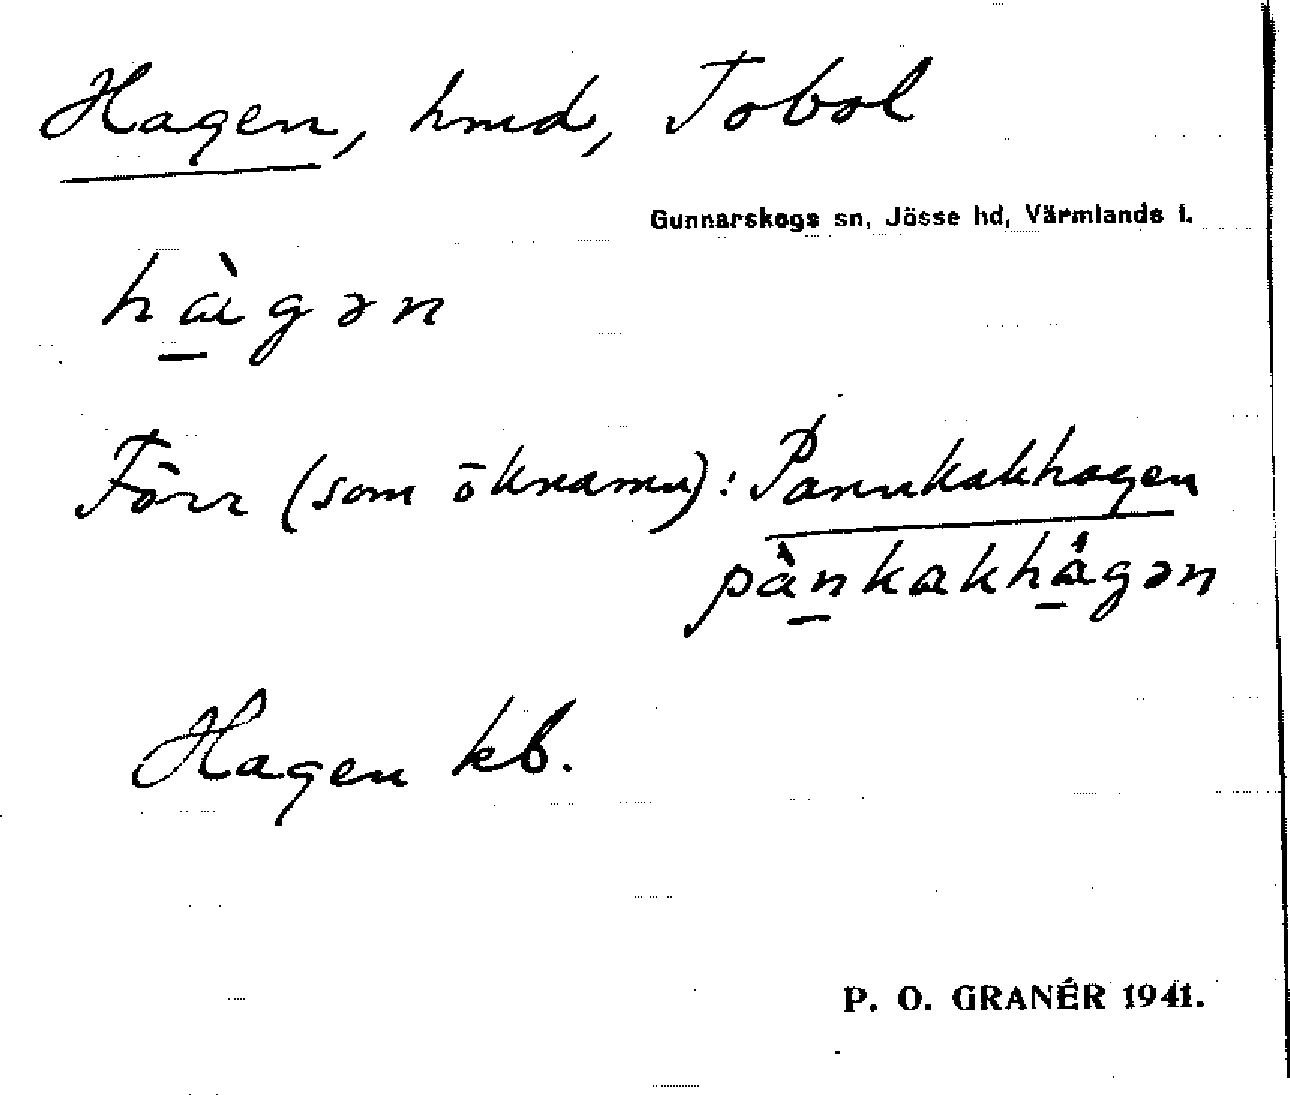 Hagen, hmd, Tobol
Gunnarskogs sn, Jösse hd, Värmlands l.
hàgən
Förr (som öknamn): Pannkakhagen
pànkakhågən
Hagen kb.
P. O. GRANÉR 1941.